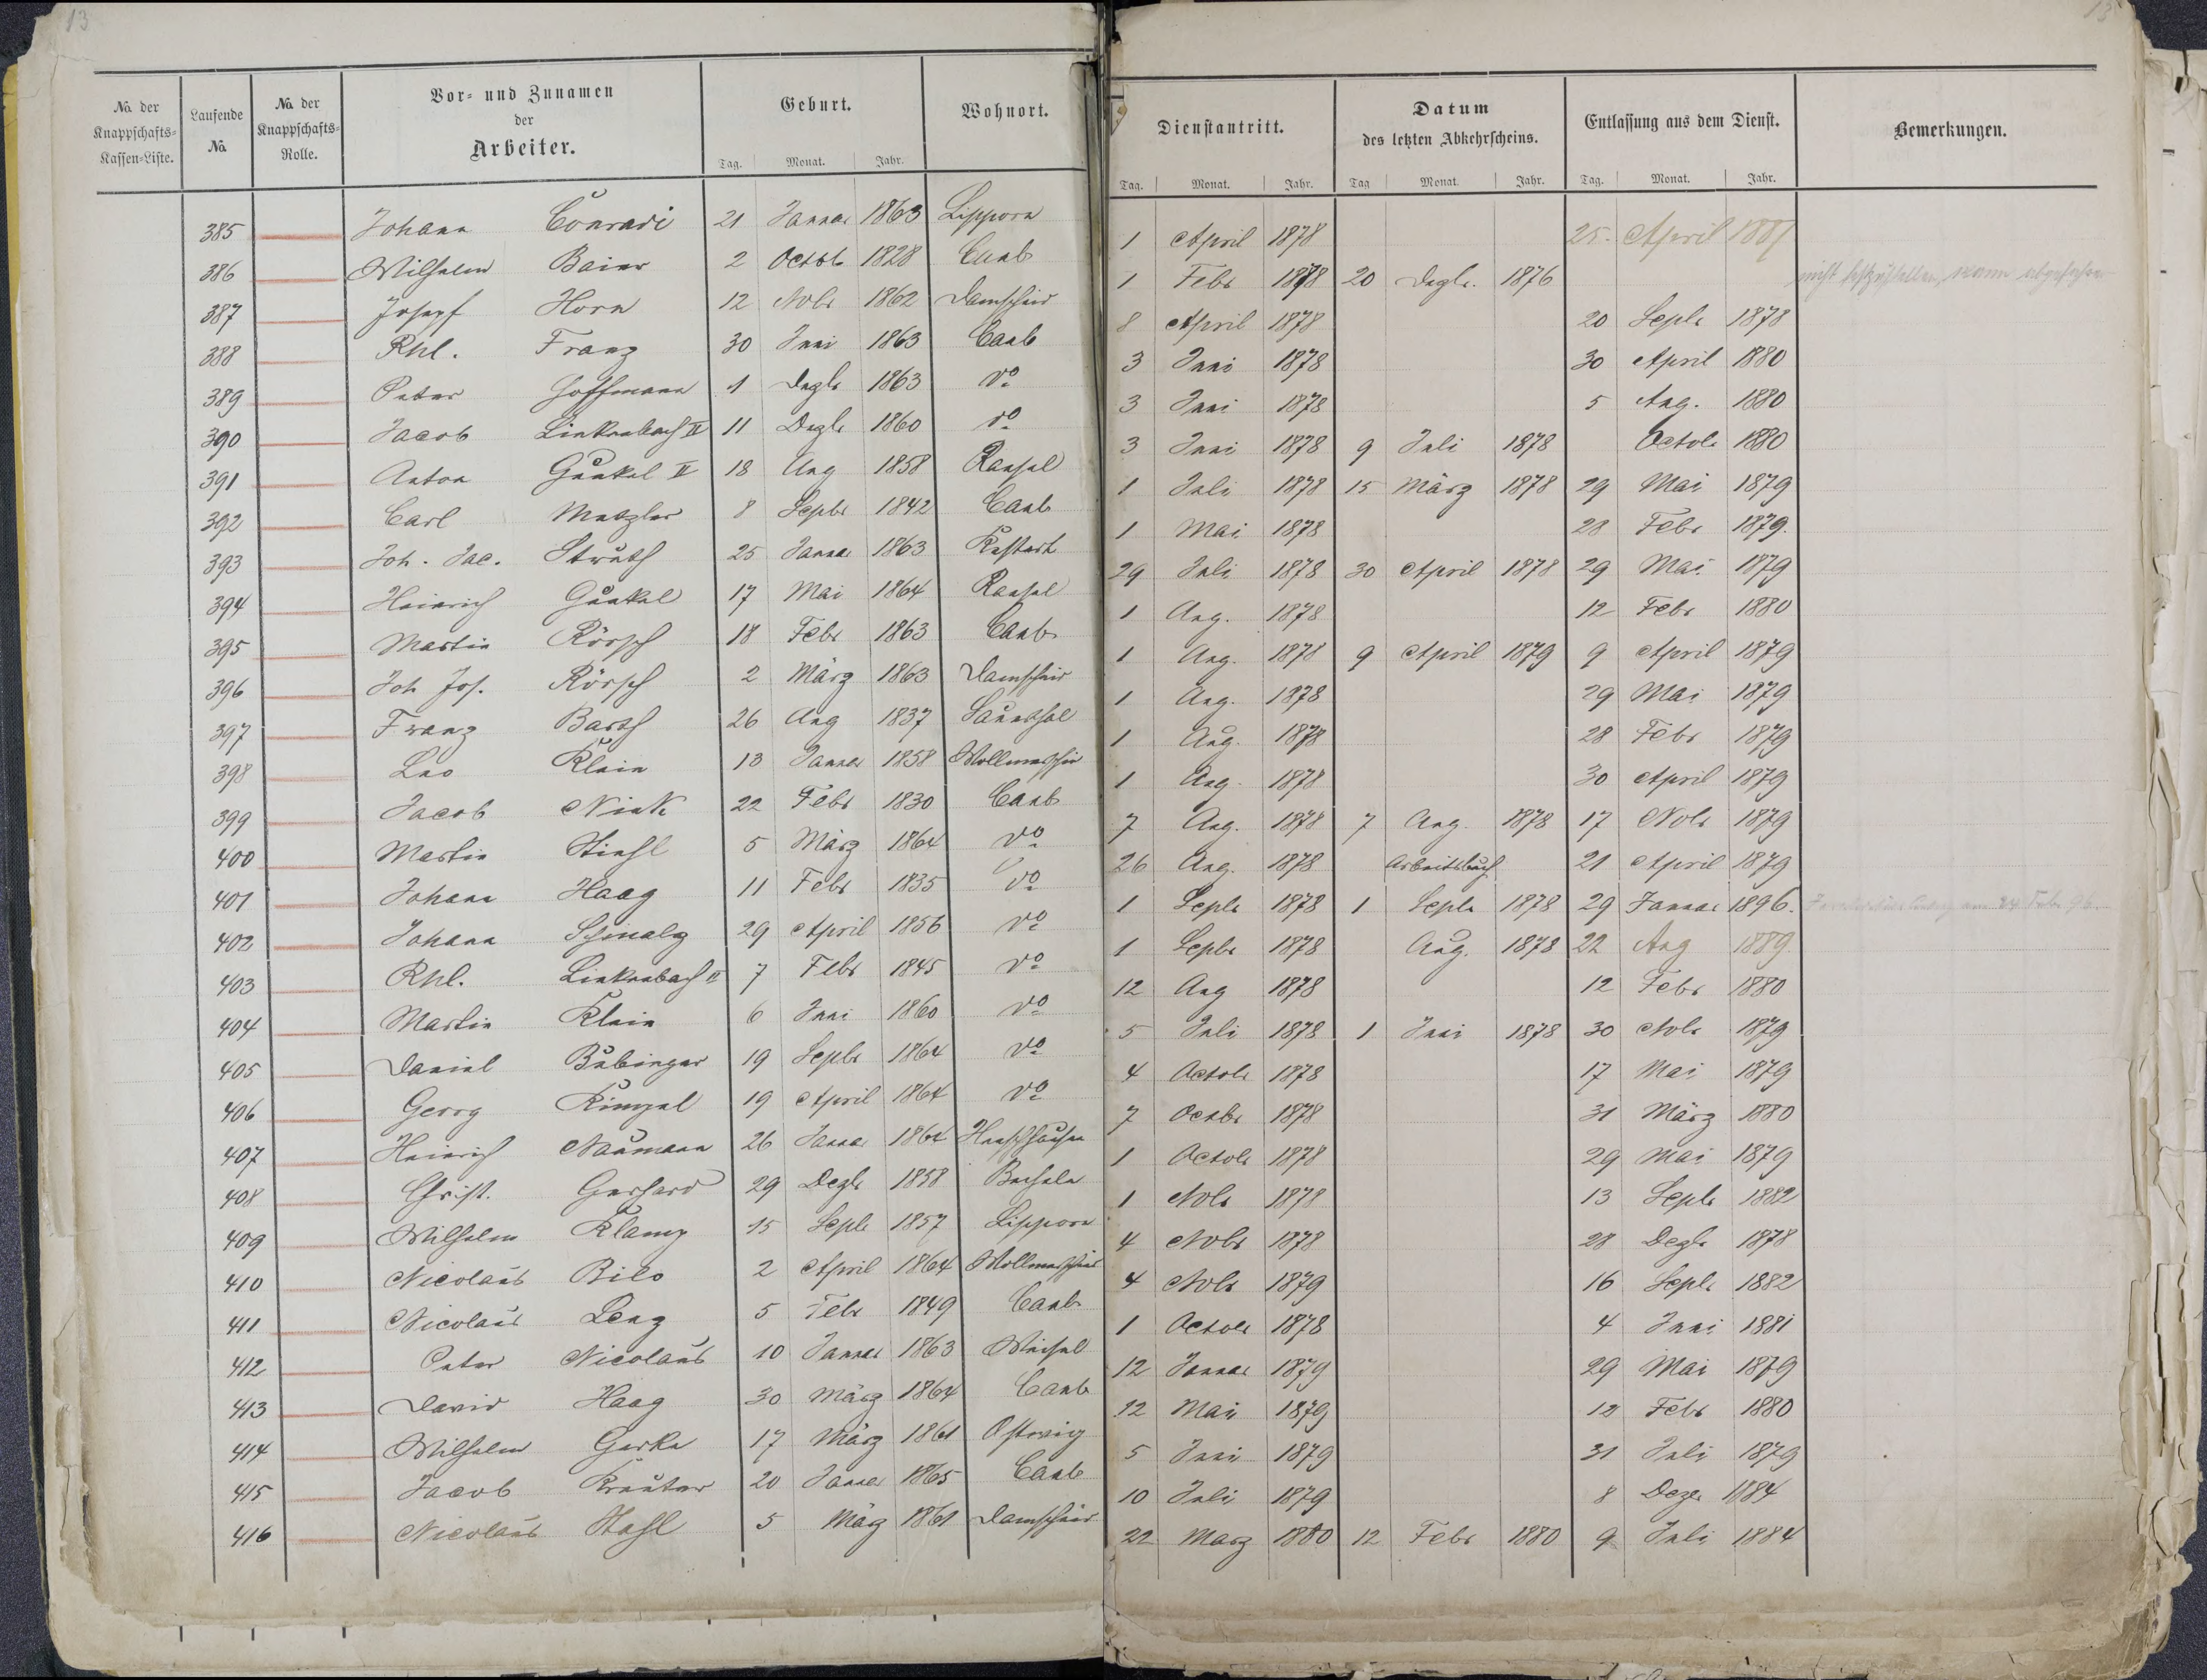 13
13
No. der Knappschafts-Kassen-Liste. Laufende No. No. der Knappschafts-Rolle. Vor- und Zunamen der Arbeiter. Geburt. Tag. Monat. Jahr. Wohnort. Dienstantritt. Tag. Monat. Jahr. Datum des letzten Abkehrscheins. Tag Monat. Jahr. Entlassung aus dem Dienst. Tag. Monat. Jahr. Bemerkungen.
385 Johann Conradi 21 Januar 1863 Lipporn 1 April 1878 25. April 1887
386 Wilhelm Baier 2 Octob 1828 Caub 1 Febr 1878 20 Dezbr. 1876 nicht festzustellen, wann abgefahren
387 Josepf Horn 12 Nobr 1862 Damscheid 8 April 1878 20 Sepbr 1878
388 Phl. Franz 30 Juni 1863 Caub 3 Juni 1878 30 April 1880
389 Peter Hoffmann 1 Dezbr 1863 do 3 Juni 1878 5 Aug. 1880
390 Jacob Linkenbach II 11 Dezbr 1860 do 3 Juni 1878 9 Juli 1878 Octobr 1880
391 Anton Gunkel II 18 Aug 1858 Ransel 1 Juli 1878 15 März 1878 29 Mai 1879
392 Carl Metzler 8 Sepbr 1842 Caub 1 Mai 1878 28 Febr 1879.
393 Joh. Jac. Struth 25 Januar 1863 Kestert 29 Juli 1878 30 April 1878 29 Mai 1879
394 Heinrich Gunkel 17 Mai 1864 Ransel 1 Aug. 1878 12 Febr 1880
395 Martin Rörsch 18 Febr 1863 Caub 1 Aug. 1878 9 April 1879 9 April 1879
396 Joh Jos. Rörsch 2 März 1863 Damscheid 1 Aug. 1878 29 Mai 1879
397 Franz Barth 26 Aug 1837 Sauerthal 1 Aug. 1878 28 Febr 1879
398 Leo Klein 13 Januar 1858 Wollmerschied 1 Aug. 1878 30 April 1879
399 Jacob Nink 22 Febr 1830 Caub 7 Aug. 1878 7 Aug. 1878 17 Nobr 1879
400 Martin Stiehl 5 März 1864 do 26 Aug. 1878 Arbeitsbuch 21 April 1879
401 Johann Haag 11 Febr 1835 do 1 Sepbr 1878 1 Sepbr 1878 29 Januar 1896.
402 Johann Schmalz 29 April 1856 do 1 Sepbr 1878 Aug. 1878 22 Aug 1889.
403 Phl. Linkenbach II 7 Febr 1845 do 12 Aug 1878 12 Febr 1880
404 Martin Klein 6 Juni 1860 do 5 Juli 1878 1 Juni 1878 30 Nobr 1879
405 Daniel Bubinger 19 Sepbr 1864 do 4 Octobr 1878 17 Mai 1879
406 Georg Kimpel 19 April 1864 do 7 Octbr 1878 31 März 1880
407 Heinrich Naumann 26 Januar 1864 1 Octobr 1878 29 Mai 1879
408 Christ. Gerhard 29 Dezbr 1858 Bacheln 1 Nobr 1878 13 Sepbr 1882
409 Wilhelm Klamp 15 Sepbr 1857 Lipporn 4 Nobr 1878 28 Dezbr 1878
410 Nicolaus Bilo 2 April 1864 Wollmerschied 4 Nobr 1879 16 Sepbr 1882
411 Nicolaus Lenz 5 Febr 1849 Caub 1 Octobr 1878 4 Juni 1881
412 Peter Nicolaus 10 Januar 1863 Weisel 12 Januar 1879 29 Mai 1879
413 David Haag 30 März 1864 Caub 12 Mai 1879 12 Febr 1880
414 Wilhelm Gerke 17 März 1861 Ostwig 5 Juni 1879 31 Juli 1879
415 Jacob Kreuter 20 Januar 1865 Caub 10 Juli 1879 8 Dezr 1884
416 Nicolaus Stahl 5 März 1861 Damscheid 22 März 1880 12 Febr 1880 9 Juli 1884